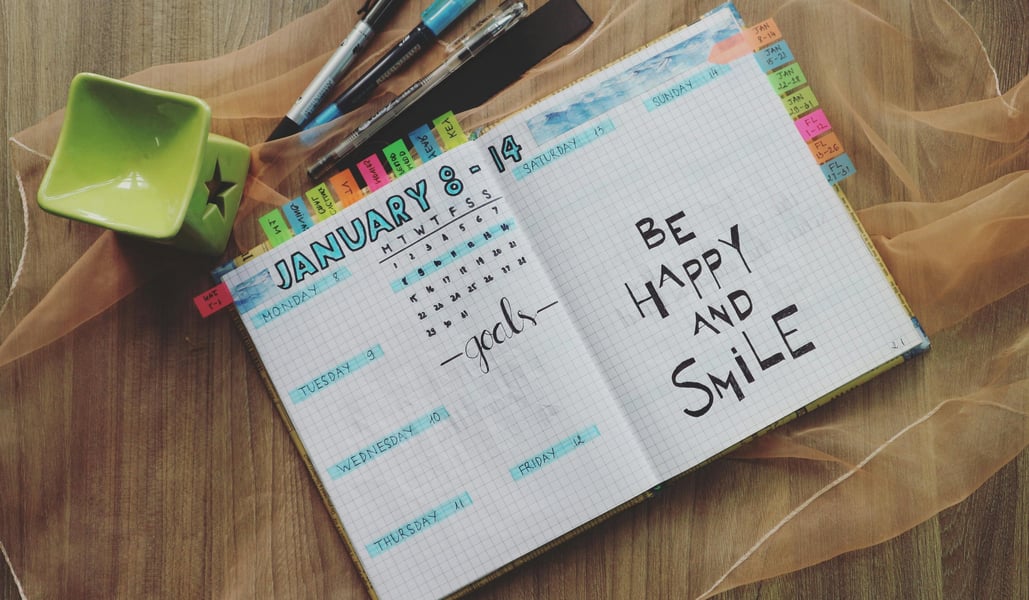 JANUARY 8-14
M T W T F S S
1 2 3 4 5 6 7
8 9 10 11 12 13 14
15 16 17 18 19 20 21
22 23 24 25 26 27 28
29 30 31
MONDAY 8
-goals-
TUESDAY 9
WEDNESDAY 10
THURSDAY 11
FRIDAY 12
SATURDAY 13
SUNDAY 14
BE
HAPPY
AND
SMiLE
21
KEY
YEAR
JAN
1-7
JAN
8-14
JAN
15-21
JAN
22-28
JAN
29-31
FL
1-12
FL
13-26
FL
27-31